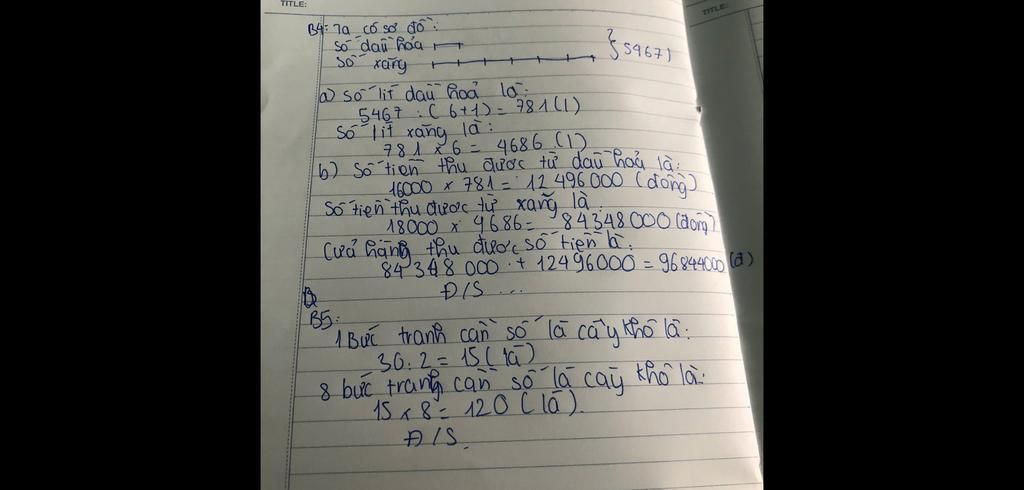 TITLE:
TITLE:
B4: Ta có sơ đồ:
Số dầu hỏa
Số xăng
5467 l
a) Số lít dầu hoả là:
5467 : (6+1) = 781 (l)
Số lít xăng là:
781 x 6 = 4686 (l)
b) Số tiền thu được từ dầu hoả là:
16000 x 781 = 12496000 (đồng)
Số tiền thu được từ xăng là
18000 x 4686 = 84348000 (đồng)
Cửa hàng thu được số tiền là:
84348000 + 12496000 = 96844000 (đ)
Đ/S ...
B5:
1 Bức tranh cần số lá cây khô là:
30 : 2 = 15 (lá)
8 bức trang cần số lá cây khô là:
15 x 8 = 120 (lá).
Đ/S.